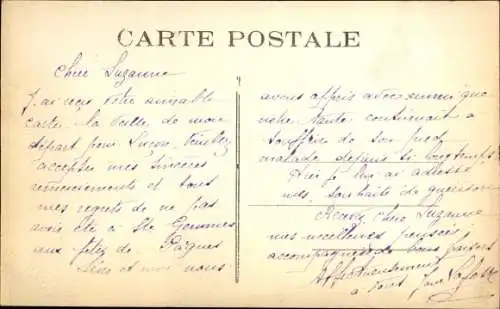 CARTE POSTALE
Chère Suzanne
J'ai reçu votre aimable
carte la veille de mon
départ pour Luçon. Veuillez
accepter mes sincères
remerciements et tous
mes regrets de ne pas
avoir été à Ste Gemmes
aux fêtes de Pâques
Léna et moi nous
avons appris avec ennui que
votre tante continuait à
souffrir de son pied
malade depuis si longtemps.
je lui ai adressé
mes souhaits de guérison
Recevez Chère Suzanne
mes meilleures pensées
accompagnées de bons baisers
Affectueusement
à vous